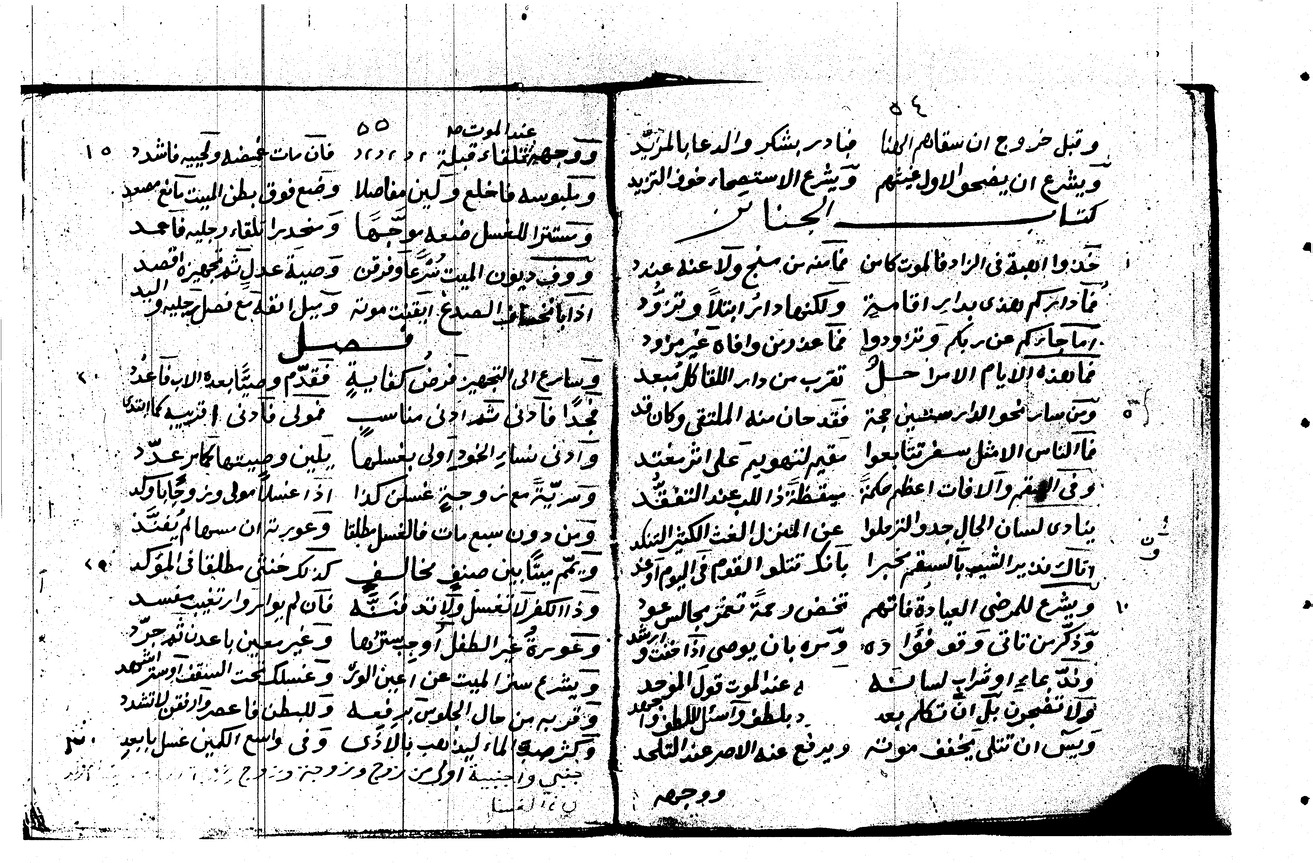 ٥٤
وقبل خروج ان سقاهم الهنا فبادر بشكر والدعا بالمزيد
ويشرع ان يضحوا لاول غيثهم ويشرع الاستصحاء خوف التزيد
كتاب الجنائز
خذوا اهبة في الزاد فالموت كائن فما منه من منج ولا عنه عندد
فما داركم هذي بدار اقامة ولكنها دار ابتلا وتزود
اما جاءكم عن ربكم وتزودوا فما عذر من وافاه غير مزود
فما هذه الايام الا مراحل تقرب من دار اللقا كل مبعد
ومن سار نحو الدار ستين حجة فقد حان منه الملتقى وكان قد
فما الناس الا مثل سفر تتابعوا مقيم لتهويم على اثر مغتد
وفي السقم والآفات اعظم حكمة ميقظة ذا اللب عند التفقد
ينادي لسان الحال جدوا لترحلوا عن المنزل الغث الكثير التنكد
اتاك نذير الشيب بالسقم مخبرا بانك تتلوا القوم في اليوم او غد
١٠
ويشرع للمرضى العيادة فاتهم تخض رحمة تغمر مجالس عود
وذكر من تاتي وقو فؤاده ومره بان يوصي اذا خفت وارشد
وند بماء او شراب لسانه عند الموت قول الموحد
ولا تضجرن بل ان تكلم بعد بلطف واسئل اللطف واجهد
ويس ان تتلى يخفف موته ويرفع عنه الاصر عند التلحد
ووجهه
٥٥
عند الموت صح
ووجهه تلقاء قبلة فان مات غمضه ولحييه فاشدد
١٥
وملبوسه فاخلع ولين مفاصلا وضع فوق بطن الميت مانع مصعد
ومستترا للغسل ضعه موجها ومنحدرا تلقاء رجليه فاعمد
ووف ديون الميت شرعا وفرقن وصية عدل ثم تجهيزه اقصد
اذا بانخساف الصدغ ايقنت موته وميل انفه مع فصل رجليه واليد
فصل
وسارع الى التجهيز فرض كفاية فقدم وصيا بعده الاب فاعدد
٢٠
فجدا فادنى ثم ادنى مناسب فمولى فادنى اقربيه كما ابتدي
وادنى نساء الخود اولى بغسلها يلين وصيتها كما مر عدد
وسرية مع زوجة غسلن كذا اذا غسلا مولى وزوجا باوكد
ومن دون سبع مات فالغسل مطلقا وعورته ان مسها لم يفند
ويمم ميتا بين صنف مخالف كذلك خنثى مطلقا في المؤكد
٢٥
وذا الكفر لا تغسل ولا تدفننه فان لم يوار وار تغييب مفسد
وعورة غير الطفل اوجب سترها وغير معين باعدن ثم جرد
ويشرع ستر الميت عن اعين الورى وغسلك تحت السقف او ستر اشهد
وقربه من حال الجلوس برفعه وللبطن فاعصر وارفقن لا تشدد
وكثر صب الماء ليذهب بالاذى وفي واسع الكمين غسل بابعد
٣٠
جنبي واجنبية اولى من زوج وزوجة وزوج